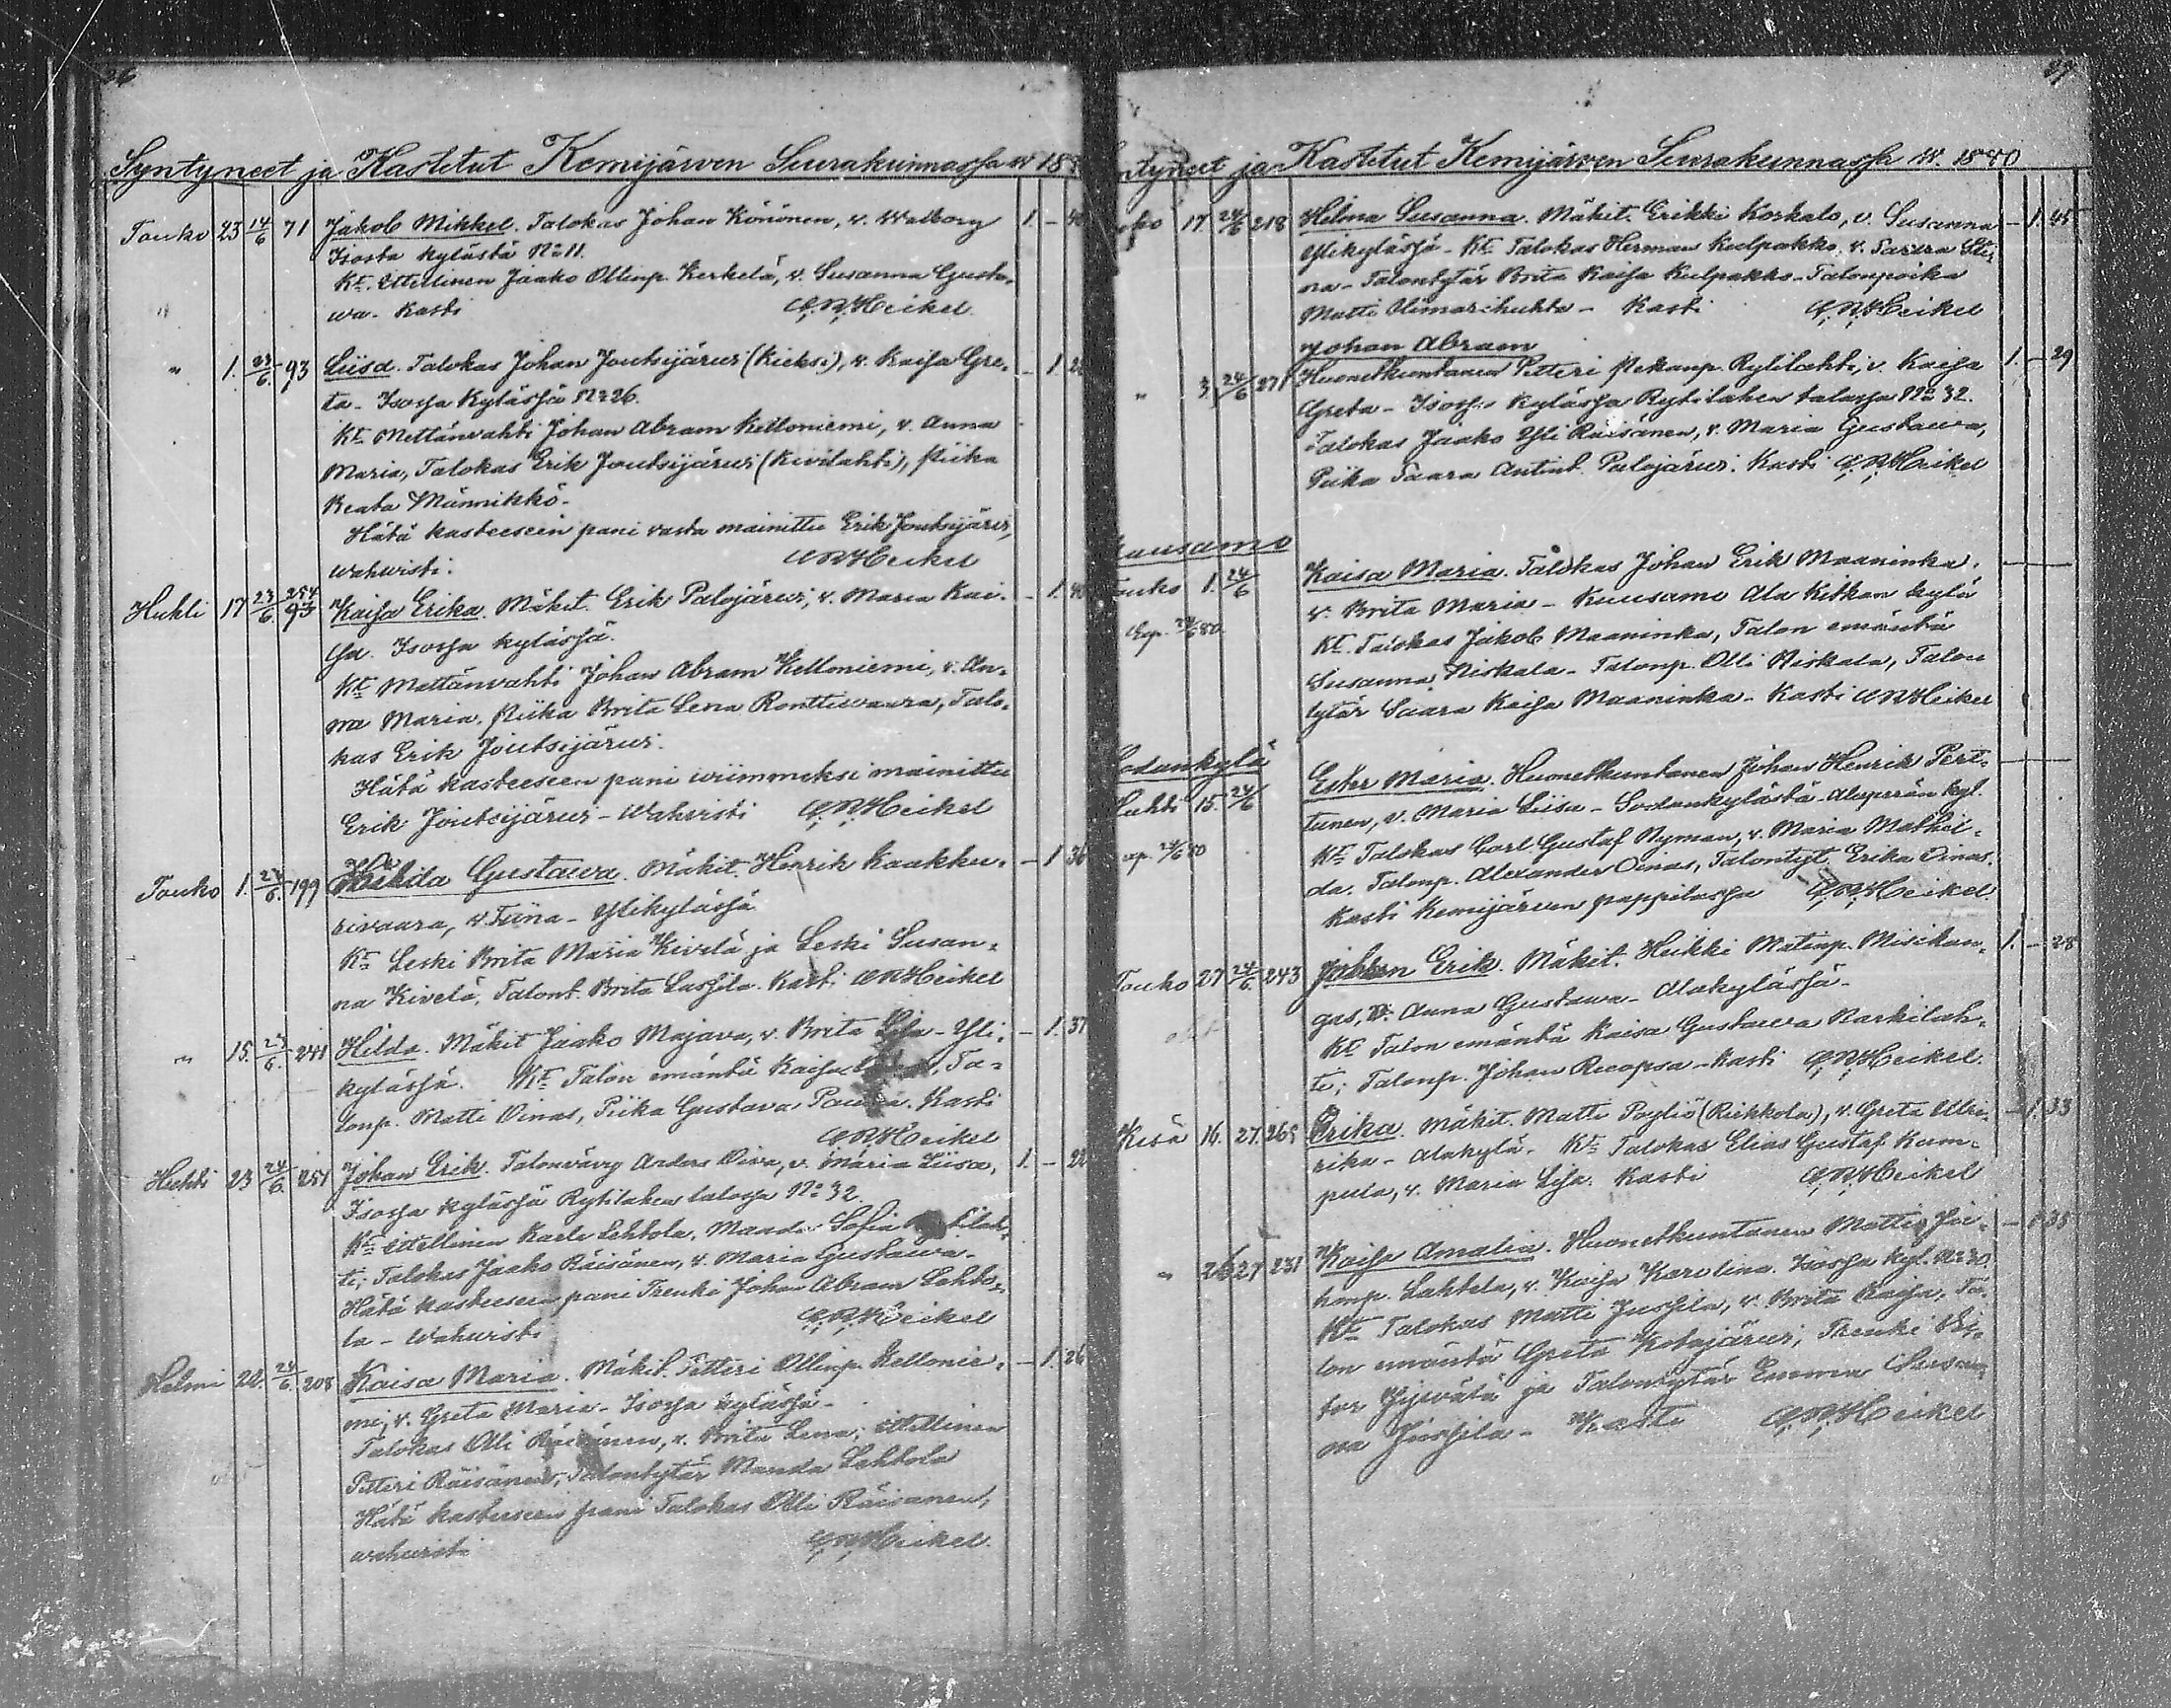 26
Syntyneet ja Kastetut Kemijärwen Seurakunnassa w 18
Touko 23 14/6 71 Jakob Mikkel. Talokas Johan Könönen, v. Walborg 1 - 40
Isosta kylästä No 11.
Kt. Ittellinen Jaako Ollinp. Kerkelä, v. Susanna Gusta-
wa. Kasti A.W.Heikel
" 1. 23/6. 93 Liisa. Talokas Johan Joutsijärwi (Kieksi), v. Kaisa Gre- - 1 22
ta - Isossa Kylässä No 26.
Kt Mettänvahti Johan Abram Kelloniemi, v. Anna
Maria, Talokas Erik Joutsijärwi (Kivilahti), Piika
Beata Männikkö.
Hätä kasteeseen pani vasta mainittu Erik Joutsijärwi,
wahwisti. A.W.Heikel
Huhti 17 23/6. 254 93 Kaisa Erika. Mäkit. Erik Palojärwi, v. Maria Kai- - 1. 40
sa. Isossa kylässä.
Kt Mettänvahti Johan Abram Kelloniemi, v. An-
na Maria. Piika Brita Lena Ronttiwaara, Talo-
kas Erik Joutsijärwi.
Hätä kasteeseen pani wiimmeksi mainittu
Erik Joutsijärwi - Wahvisti A.W.Heikel
Touko 1. 23/6. 199 Hilda Gustawa. Mäkit. Henrik Kaakku- - 1 36
riwaara, v. Tiina - Ylikylässä
Kt Leski Brita Maria Kivelä ja Leski Susan-
na Kivelä, Talont. Brita Lassila. Kasti A.W.Heikel
" 15. 23/6. 241 Hilda. Mäkit Jaako Majava, v. Brita Lisa - Yli- - 1. 37
kylässä. Kt Talon emäntä Kaisa , Ta-
lonp. Matti Oinas, Piika Gustava . Kasti
A.W.Heikel
Huhti 23 24/6. 251 Johan Erik. Talonvävy Anders Oiva, v. Maria Liisa, 1. - 22
Isossa kylässä Rytilahen talossa No 32.
Kt Ittellinen Karle Lehtola, Manda Sofia Rytilah-
ti; Talokas Jaako Räisänen, v. Maria Gustawa.
Hätä kasteeseen pani Trenki Johan Abram Lahto-
la - Wahwisti A.W.Heikel
Helmi 22. 24/6. 208 Kaisa Maria. Mäkit. Petteri Ollinp. Kellonie- - 1. 26
mi, v. Greta Maria - Isossa kylässä -
Talokas Olli Räisänen, v. Brita Lena; Ittellinen
Petteri Räisänen, Talontytär Manda Lahtola
Hätä kasteeseen pani Talokas Olli Räisänen,
wahwisti A.W.Heikel.
27
ntyneet ja Kastetut Kemijärwen Seurakunnassa w. 1880
17 24/6 218 Helma Susanna. Mäkit. Erikki Korkalo, v. Susanna - 1. 45
Ylikylässä - Kt Talokas Herman Kulpakko, v. Saara Sti-
na - Talontytär Brita Kaisa Kulpakko - Talonpoika
Matti Ulimarihuhta - Kasti A.W.Heikel
Johan Abram
" 3. 24/6 271 Huonetkuntanen Petteri Pekanp. Rytilahti, v. Kaisa 1. - 29
Greta - Isossa kylässä Rytilahen talossa No 32.
Talokas Jaako Yli Räisänen, v. Maria Gustawa,
Piika Saara Antint. Palojärwi. Kasti A.W.Heikel
Kuusamo
Touko 1. 24/6 Kaisa Maria. Talokas Johan Erik Maaninka.
v. Brita Maria - Kuusamo Ala Kitkan kylä
Exp. 24/6 80. Kt. Talokas Jakob Maaninka, Talon emäntä
Susanna Niskala - Talonp. Olli Niskala, Talon
tytär Saara Kaisa Maaninka - Kasti A.W.Heikel
Sodankylä
Huhti 15. 24/6 Ester Maria. Huonetkuntanen Johan Henrik Pert-
tunen, v. Maria Liisa - Sodankylästä Aluperän kyl.
exp. 24/6 80 Kt Talokas Carl Gustaf Nyman, v. Maria Mathil-
da. Talonp. Alexander Oinas, Talontyt. Erika Oinas.
Kasti Kemijärwen pappilassa A.W.Heikel.
Touko 27 24/6. 243 Johan Erik. Mäkit. Heikki Matinp. Misikan- 1. - 28
gas, v. Anna Gustawa - Alakylässä -
Kt Talon emäntä Kaisa Gustawa Karkilah-
ti; Talonp. Johan Recopsa - Kasti A.W.Heikel.
Kesä 16. 27. 265 Erika. Mäkit. Matti Pöyliö (Riekkola), v. Greta Ulri- - 1. 33
rika - Alakylä. Kt Talokas Elias Gustaf Kum-
pula, v. Maria Lisa. Kasti A.W.Heikel
" 26 27 231 Kaisa Amalia. Huonetkuntanen Matti Jo- - 1. 35
hanp. Lahtela, v. Kaisa Karolina. Isossa kyl. No 30.
Kt Talokas Matti Jussila, v. Brita Kaisa, Ta-
lon emäntä Greta Kotajärwi, Trenki Vik-
tor Hyvätä ja Talontytär Emma Susan-
na Jussila - Kasti A.W.Heikel